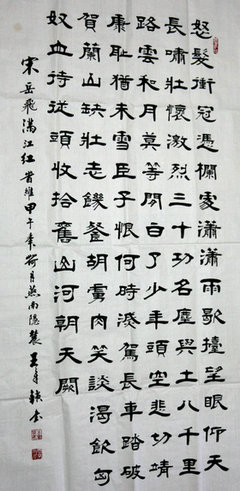 怒髮衝冠憑欄處瀟瀟雨歇擡望眼仰天
長嘯壯懷激烈三十功名塵與土八千里
路雲和月莫等閒白了少年頭空悲切靖
康耻猶未雪臣子恨何時滅駕長車踏破
賀蘭山缺壯志饑餐胡虜肉笑談渴飲匈
奴血待從頭收拾舊山河朝天闕
宋岳飛滿江紅 甲午 荷月燕南隱